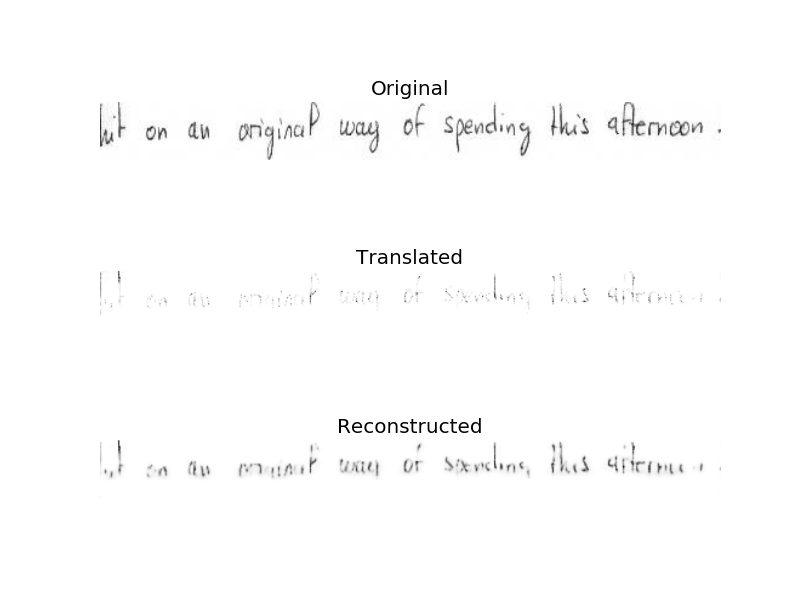 Original
hit on an original way of spending this afternoon .
Translated
hit on an original way of spending this afternoon .
Reconstructed
on an way of spending this